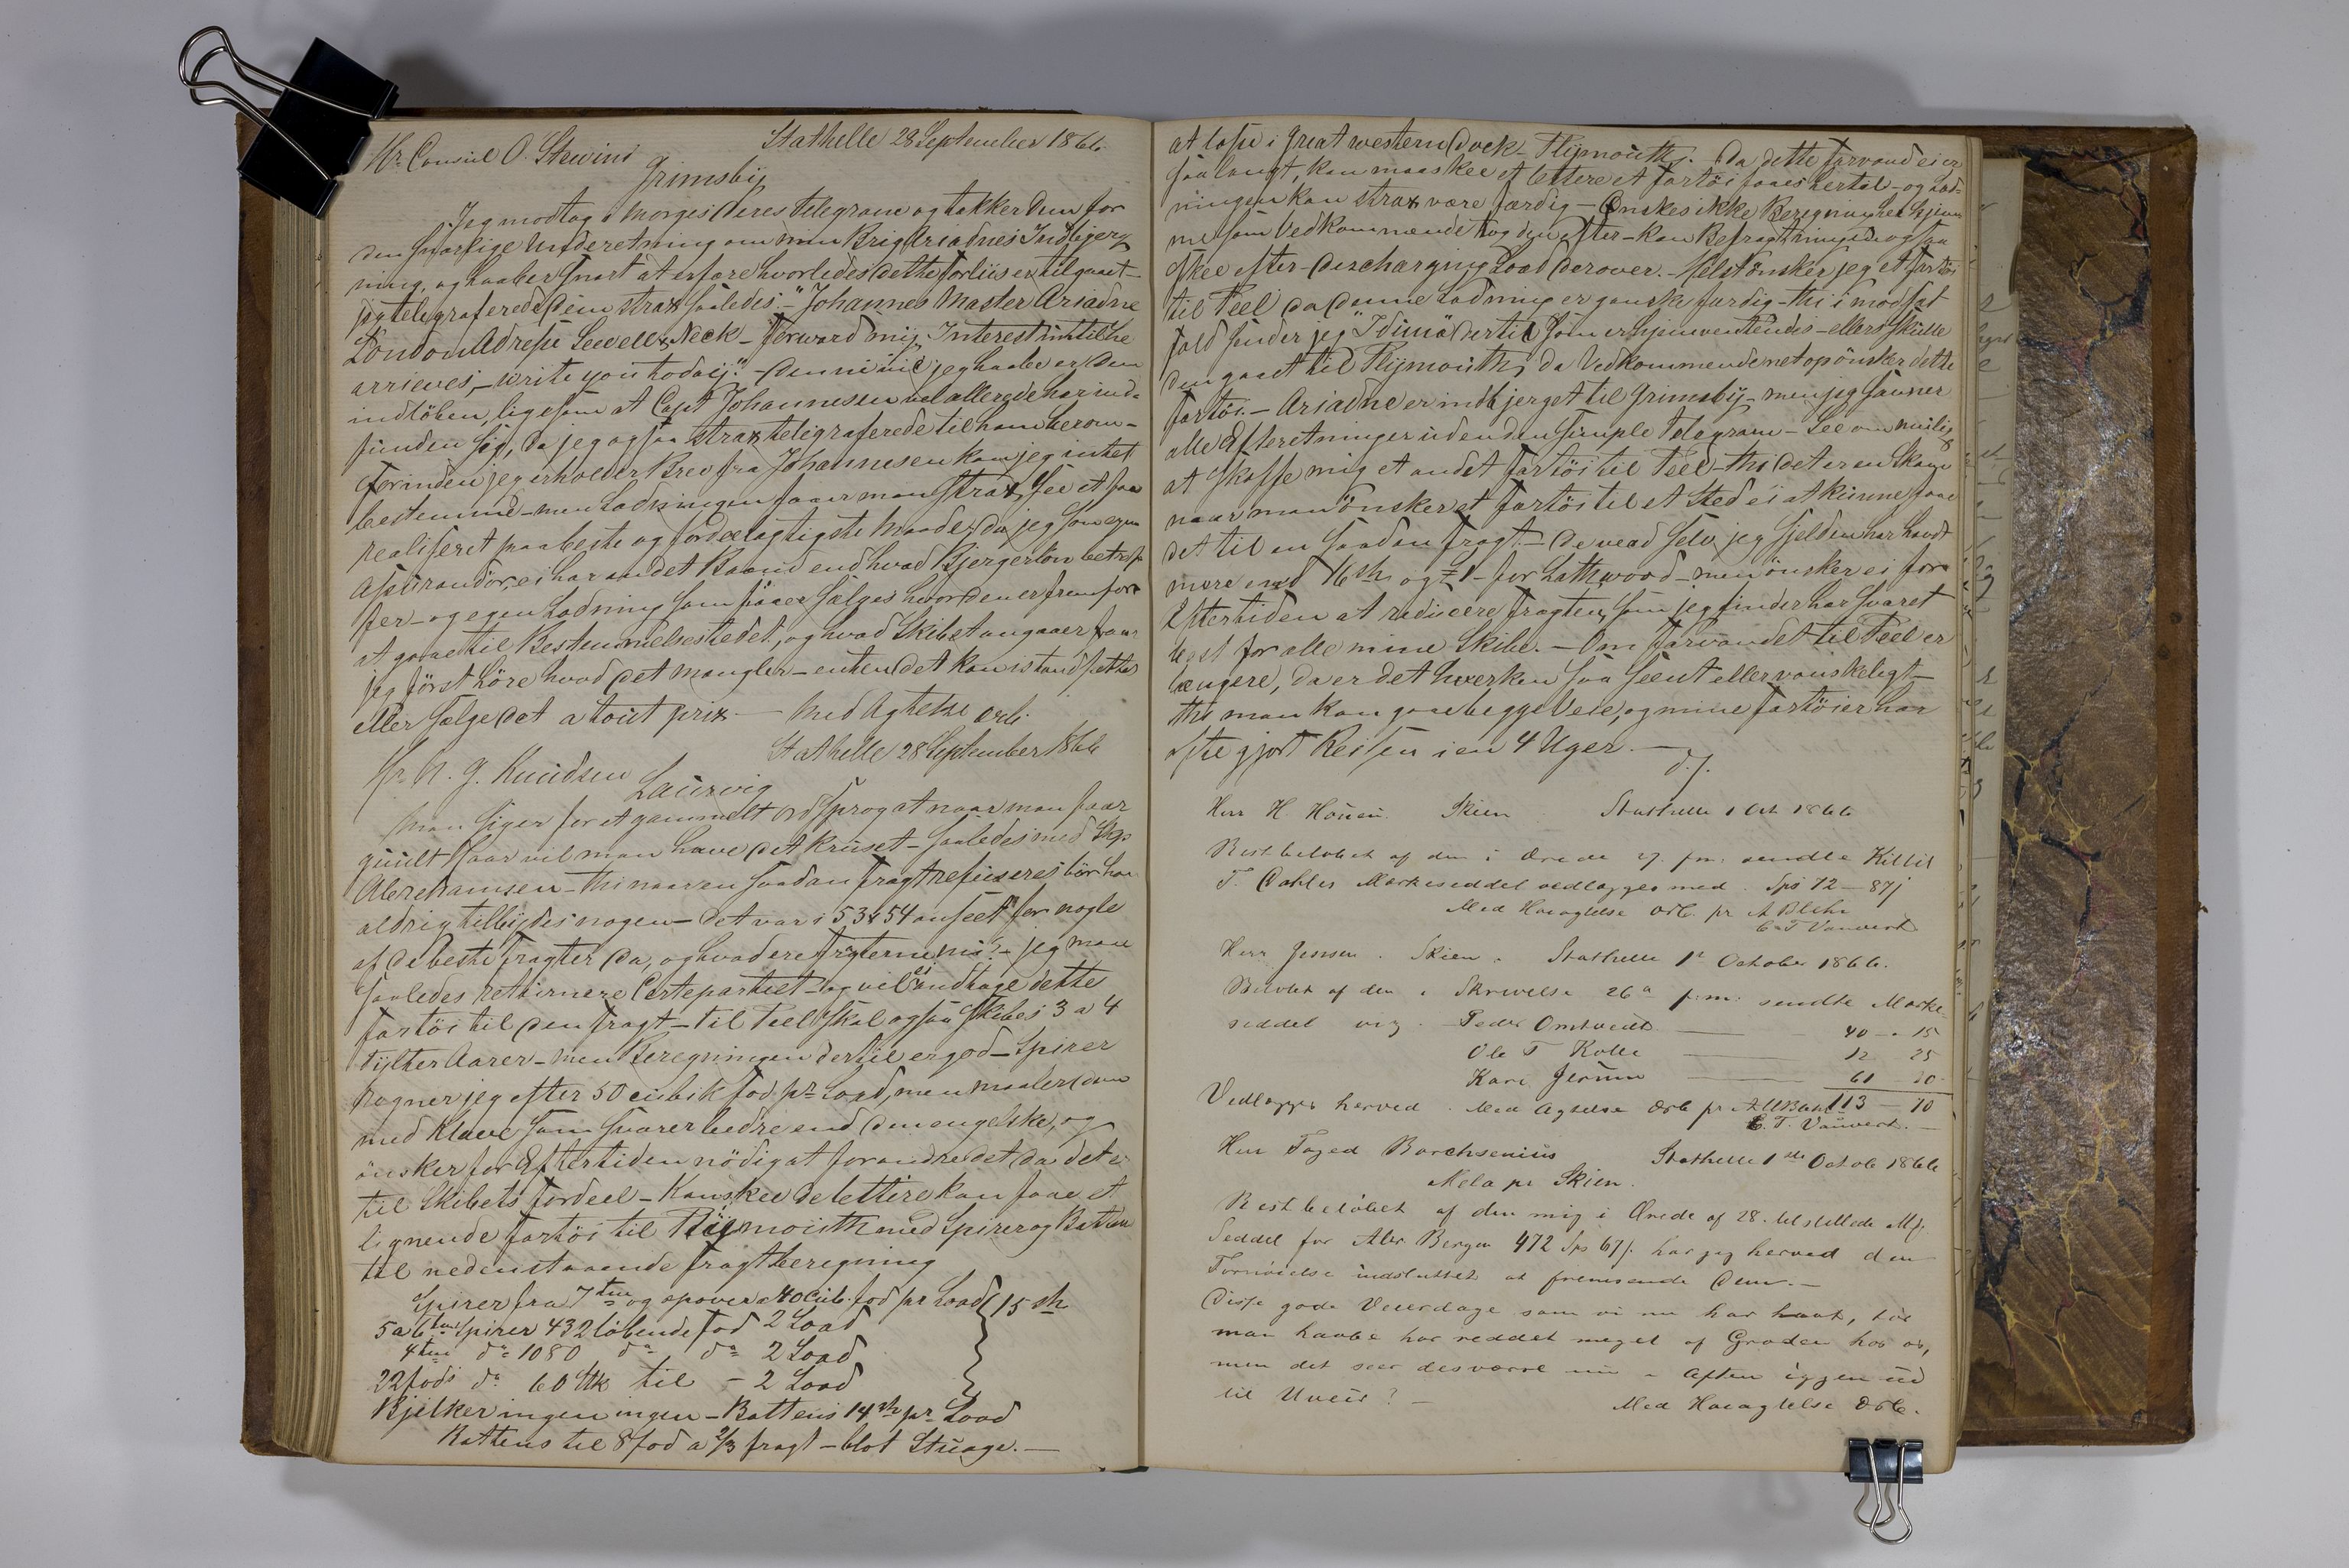 Stathelle 28 September 1866
Hr. Consul O. Stewini
Grimsby
Jeg modtog i Morges Deres Telegram og takker Dem for
den snarlige Underetning om min Brig Ariadnes Indbjerg-
ning, og haaber snart at erfare hvorledes dette Forliis er tilgaaet-
jeg telegraferede Dem strax saaledes:- "Johannes Master Ariadne
London Adresse Sewell & Neck - forward my Interest untill he
arrieves,- write you today."
indlöben, ligesom at Capt Johannesen vel allerede har ind-
funden sig, da jeg ogsaa strax telegraferede til ham herom-
Forinden jeg erholder Brev fra Johannesen kan jeg intet
bestemme - men Ladningen faaer man strax see at faa
realiseret paa beste og fordeelagtigste Maade, da jeg som egen
Assurandör, ei har andet Baand end hvad Bjergerlön betref-
fer - og egen Ladning som faaer sælges hvor den er fremfor
at gaae til Bestemmelsestedet, og hvad Skibet angaaer faar
jeg först höre hvad det mangler - enten det kan istandsættes
eller sælge det a tout prix - Med Agtelse ærb:
Stathelle 28 September 1866
Hr. N. G. Knudsen
Laurvig
Man siger for et gammelt Ordsprog at naar man faar
guult Haar vil man have det kruset - saaledes med Skp
Abrahamsen - thi naar en saadan Fragt refuseres bör han
aldrig tilbydes nogen - det var i 53 & 54 anseet for nogle
af de beste Fragter da, og hvad ere Fragterne nu? - jeg maa
saaledes retournere Certepartiet - og vil ei indtage dette
Fartöi til den Fragt - til Teel skal ogsaa skibes 3 a 4
Tylter Aarer - men Beregningen dertil er god - Spirer
regner jeg efter 50 cubik fod pr Load, men maaler dem
med Klave som svarer bedre end den engelske, og
önsker for Eftertiden nödig at forandre det da det er
til Skibets Fordeel - Kanskee De lettere kan faae et
lignende Fartöi til Plymouth med Spirer og Battens
til nedenstaaende Fragtberegning
Spirer fra 7 tm og opover a 40 Cub. fod pr Load } 15 sh
5 a 6 tm Spirer 432 löbende Fod 2 Load
4 tm do 1080 do do 2 Load
22 fods do 60 Stk til - 2 Load
Bjelker ingen ingen - Battens 14 sh pr Load
Battens til 8 fod a 2/3 fragt - blot Stuage. -
at losse i Great western Dock - Plymouth. - Da dette Farvand ei er
saa langt, kan maaskee et lettere et Fartöi faaes hertil - og Lad-
ningen kan strax være færdig - Önskes ikke Beregning her hjem-
me som Vedkommende tog den efter - kan Befragtningen ogsaa
skee efter Discharging Load derover. - Helst önsker jeg et Fartöi
til Teel da denne Ladning er ganske færdig - thi i modsat
fald sender jeg "Iduna" dertil som er hjemventendes - ellers skulle
den gaaet til Plymouth, da Vedkommende netop önsker dette
Fartöi. - Ariadne er indbjerget til Grimsby - men jeg savner
alle Efterretninger uden den simple Telegram - See om muligt
at skaffe mig et andet Fartöi til Teel - thi det er en Skam
naar man önsker et Fartöi til et Sted ei at kunne faae
det til en saadan Fragt. - De veed selv jeg sjelden har havdt
mere end 16 sh og £ 1 - for Lathwood - men önsker ei for
Eftertiden at reducere Fragten, som jeg finder har svaret
best for alle mine Skibe. - Om Farvandet til Teel er
længere, da er det hverken saa seent eller vanskeligt -
thi man kan gaae begge Veie, og mine Fartöier har
ofte gjort Reisen i en 4 Uger. -
d.s.
Herr H. Houen. Skien Stathelle 1 Oct 1866
Restbelöbet af den i Ærede 27. f.m. sendte Kittil
T. Dahles Mærkeseddel vedlægges med. Sps 72 - 87 s
Med Høiagtelse Ærb. pr A Blehr
C. T. Vauvert
Herr Jensen. Skien. Stathelle 1 October 1866.
Belöbet af den i Skrivelse 26 f.m. sendte Mærke-
seddel viz. Peder Omtvedt 40 - 15
Ole T Kolle 12 25
Kari Jerum 61 30
Vedlægges herved. Med Agtelse Ærb pr A Blehr 113 - 70
C. T. Vauvert.
Herr Foged Borchsenius Stathelle 1ste Octob 1866
Mela pr Skien.
Restbelöbet af den mig i Ærede af 28. tilstillede Mk.
Seddel for Abr Bergen 472 Sps 67 s. har jeg herved den
Fornöielse indsluttet at fremsende Dem. -
Disse gode Veierdage som vi nu har havt, tör
man haabe har reddet meget af Gröden hos os,
men det seer desværre nu i Aften iggen ud
til Uveir? -
Med Høiagtelse Ærb.